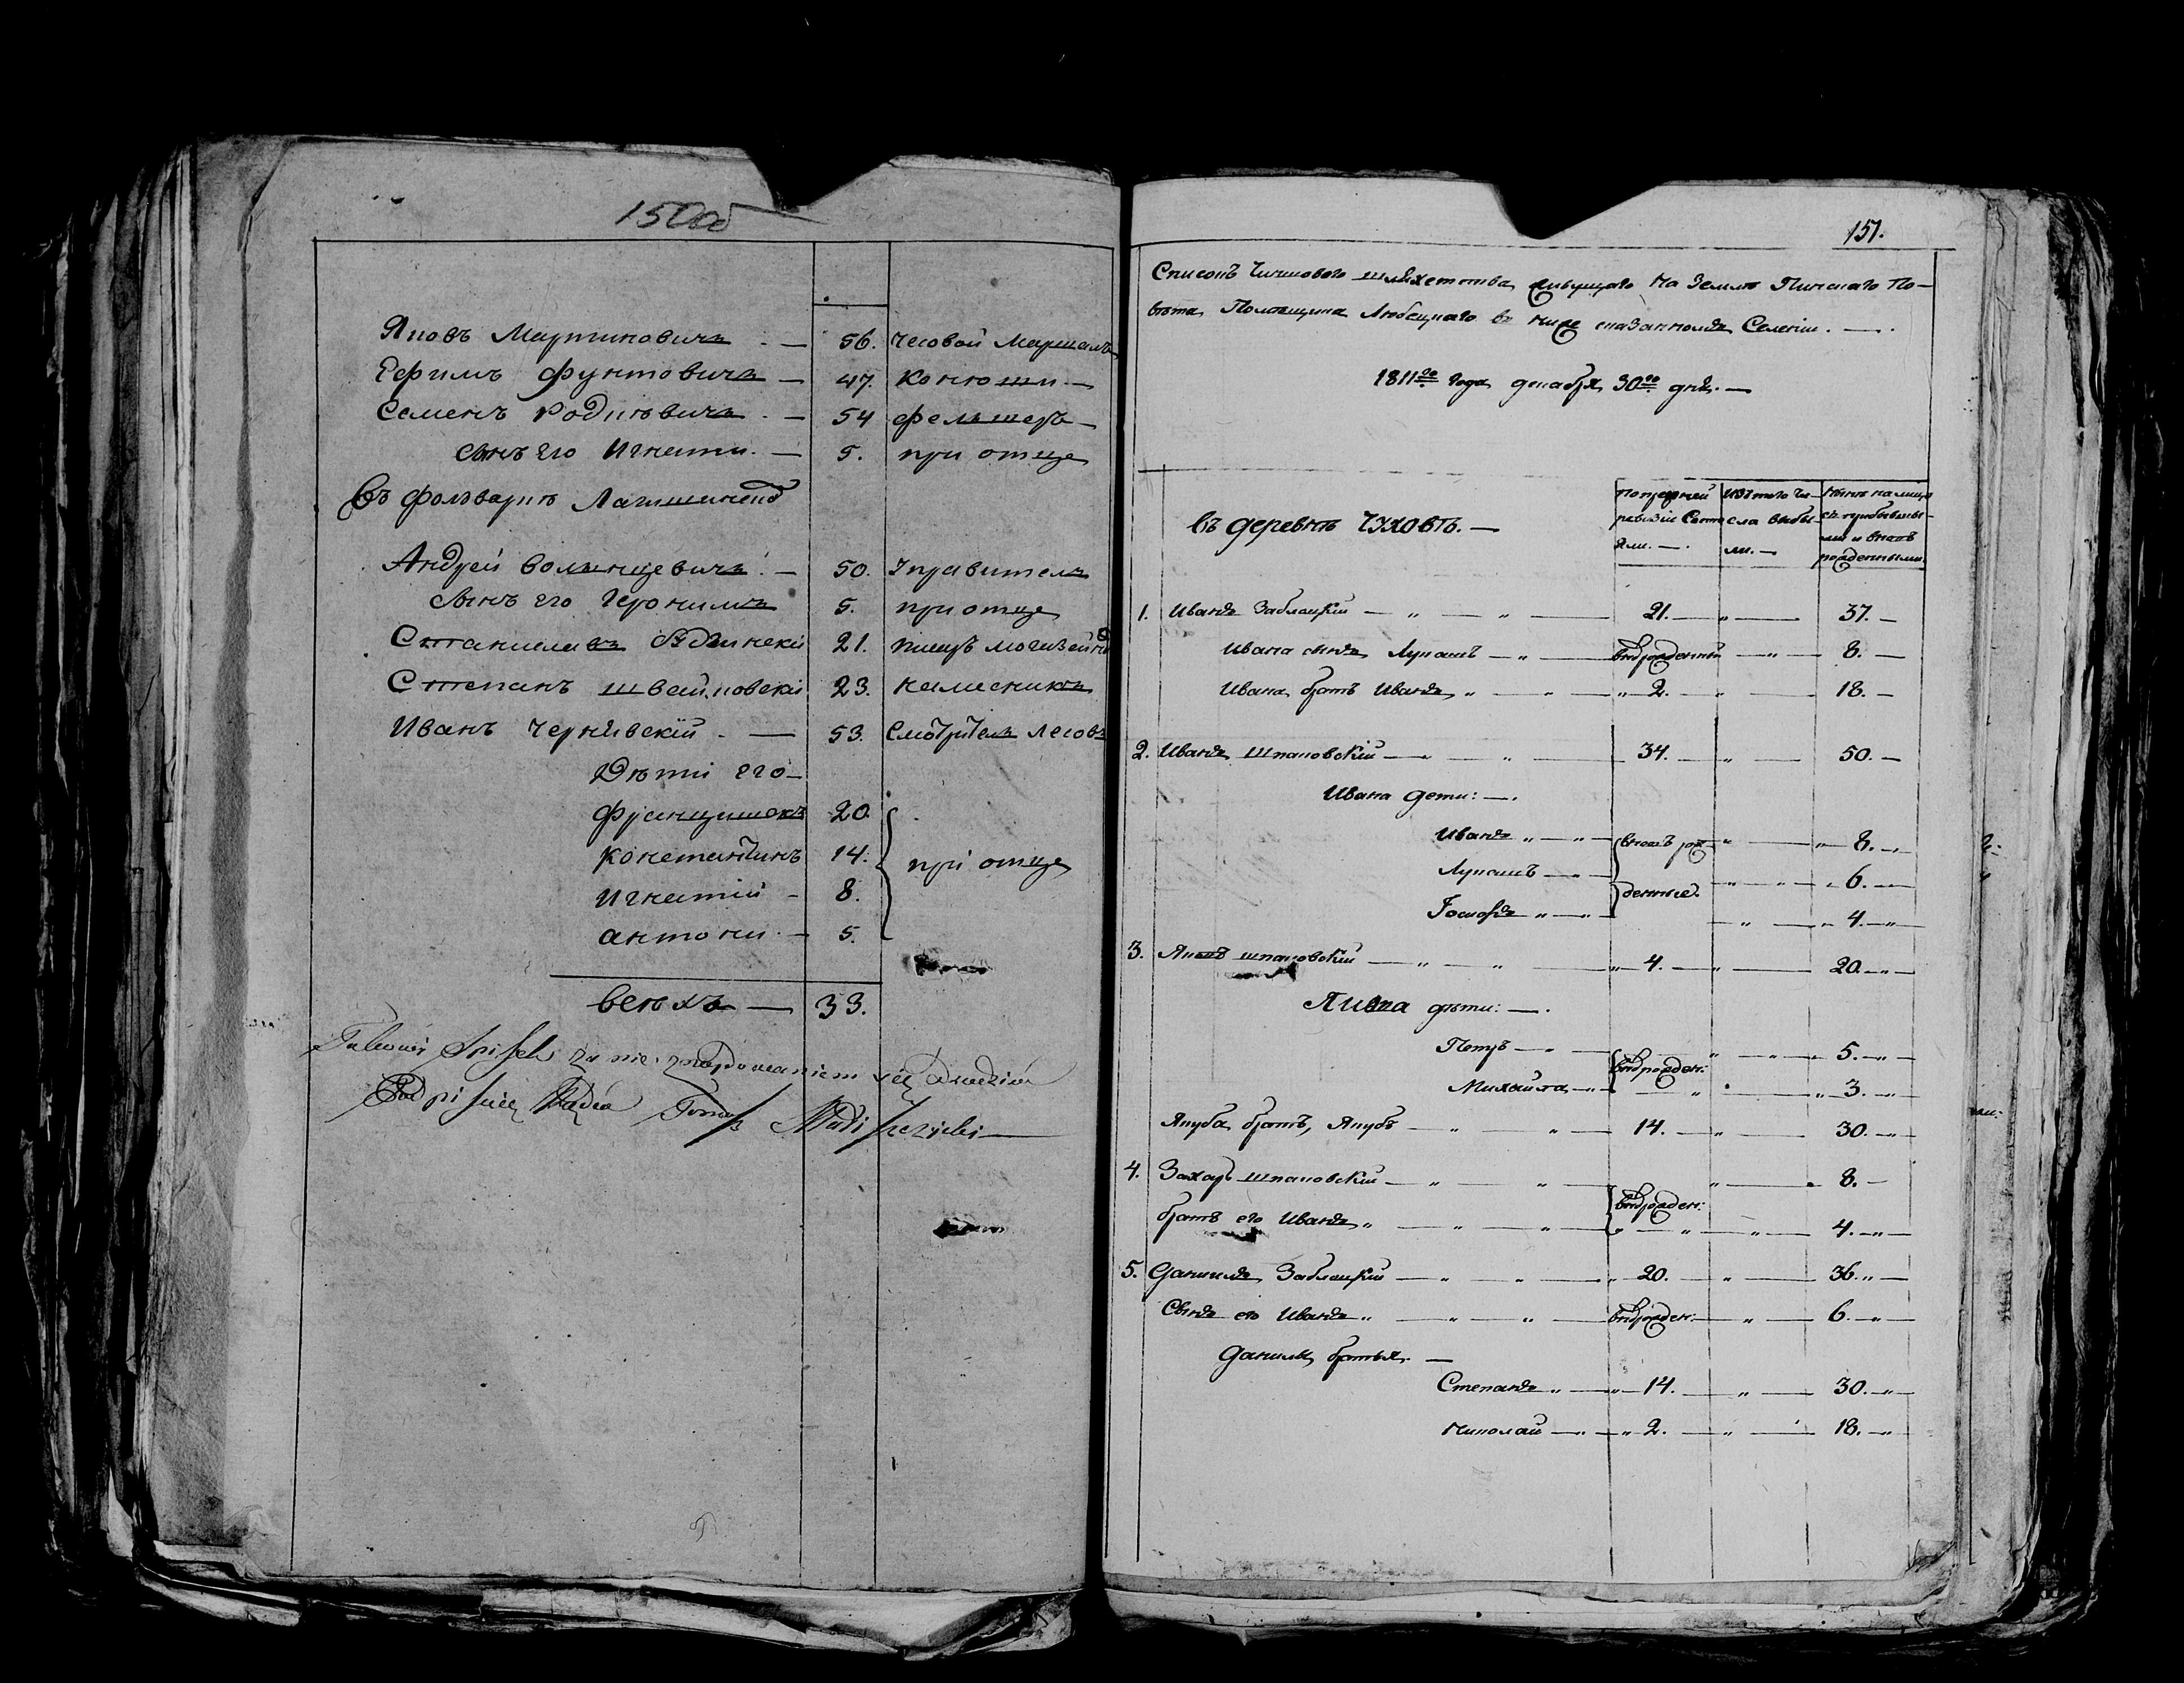 150об
Яковъ Мартиновичъ — 56. Часовой Маршалъ
Ефимъ Фунтовичъ — 47. Конюши —
Семенъ Родзевичъ — 54 фельшеръ —
Сынъ его Игнати — 5. при отце
Въ фольварке
Андрей Волынцевичъ — 50. Управитель
Сынъ его Геронимъ 5. при отце
Станиславъ 21. писарь
Степанъ Швайковскій 23. намесникъ
Иванъ Чернявскій — 53. Смотритель лесовъ
Дѣти его —
Францишекъ 20.
Константинъ 14.
при отце
Игнатій — 8.
Антони — 5.
всѣхъ — 33.
Takowy Spisek za nie znaydowaniem się
Podpisuię Tomasz
151.
Списокъ Чиншового шляхетства живущаго на Земле Пинскаго По-
вѣта, Помѣщика Любецкаго в ниже сказанномъ Селеніи. —.
1811го года декабря 30го дня. —
въ деревнѣ Чуховѣ. —
по прежней ревизіи Состояли. —. изъ того числа выбыли. — Ныне на лицо съ прибывшими и вновь рожденными
1. Иванъ Заблацкій — 21. — 37. —
Ивана сынъ Лукашъ — внврожденный — 8. —
Ивана братъ Иванъ — 2. — 18. —
2. Иванъ Шпаковскій — 34. — 50. —
Ивана дети: —.
Иванъ — вновь рож- — 8. —
Лукашъ — денные. — 6. —
Іосифъ — 4. —
3. Яковъ Шпаковскій — 4. — 20. —
Якова дѣти: —.
Петръ — 5. —
внврожден:
Михайла — 3. —
Якуба братъ, Якубъ — 14. — 30. —
4. Захаръ Шпаковскій — 8. —
внврожден:
братъ его Иванъ — 4. —
5. Данилъ Заблацкій — 20. — 36. —
Сынъ его Иванъ — внврожден: — 6. —
Данилы братья. —
Степанъ — 14. — 30. —
Николай — 2. — 18. —